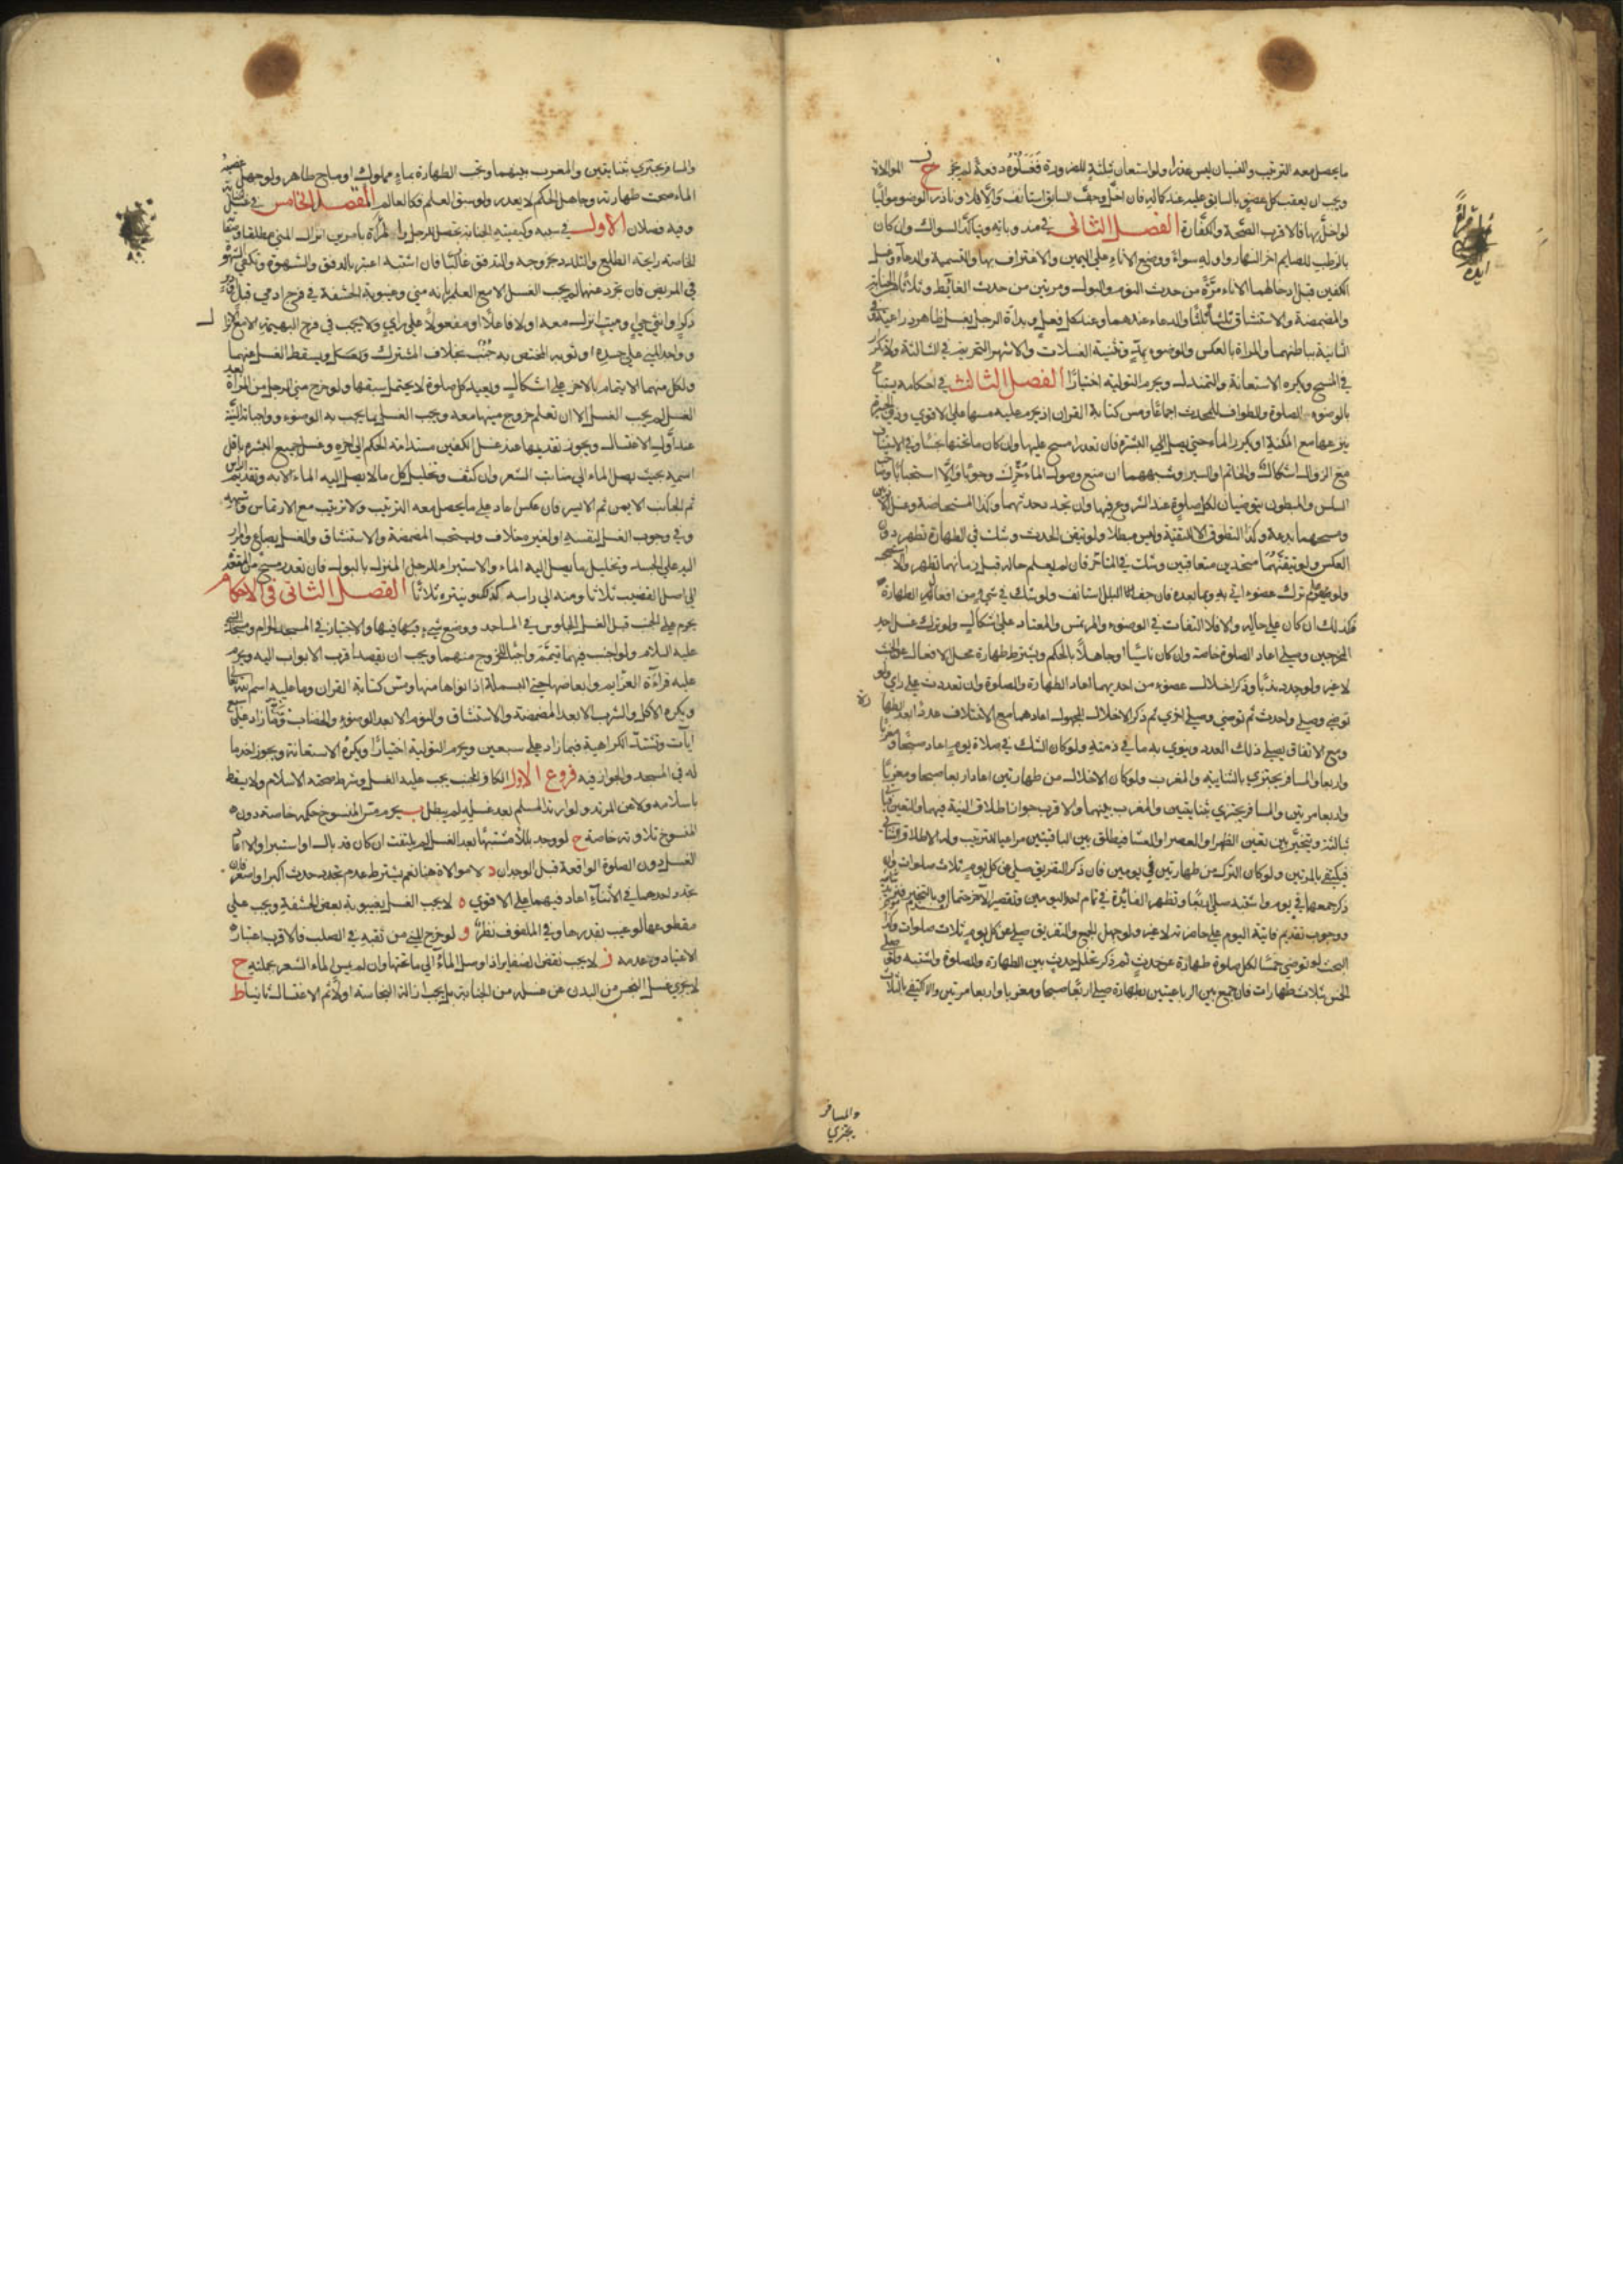 ما يحصل معه الترتيب والنسيان ليس عذرا ولو استعان بثلثة للضرورة فغسلوه دفعة لم يجز ح الموالاة
ويجب ان يعقب كل عضو بالسابق عليه عند كماله فان اخل وجف السابق استانف والا فلا وناذر الوضوء مواليا
لو اخل بها فالاقرب الصحة والكفارة الفصل الثاني في مندوباته ويتاكد السواك وان كان
بالرطب للصايم اخر النهار واوله سواء ووضع الاناء على اليمين والاغتراف بها والتسمية والدعاء وغسل
الكفين قبل ادخالهما الاناء مرة من حدث النوم والبول ومرتين من حدث الغائط وثلاثا للجنابة
والمضمضة والاستنشاق ثلثا ثلثا والدعاء عندهما وعند كل فعل وبداة الرجل بغسل ظاهر ذراعيه وفي
الثانية بباطنهما والمراة بالعكس والوضوء بمد وتثنية الغسلات والاشهر التحريم في الثالثة ولا تكرار
في المسح ويكره الاستعانة والتمندل ويحرم التولية اختيارا الفصل الثالث في احكامه يستباح
بالوضوء الصلوة والطواف للمحدث اجماعا ومس كتابة القران اذ يحرم عليه مسها على الاقوى وذو الجبيرة
ينزعها مع المكنة او يكرر الماء حتى يصل الى البشرة فان تعذرا مسح عليها وان كان ما تحتها نجسا وفي الاستيناف
مع الزوال اشكال والخاتم او السير وشبههما ان منع وصول الماء حرك وجوبا والا استحبابا وصاحب
السلس والمبطون يتوضيان لكل صلوة عند الشروع فيها وان تجدد حدثهما وكذا المستحاضة وغسل الاذنين
ومسحهما بدعة وكذا التطوق الا للتقية وليس مبطلا ولو تيقن الحدث وشك في الطهارة تطهر دون
العكس ولو تيقنهما متحدين متعاقبين وشك في المتاخر فان لم يعلم حاله قبل زمانهما تطهر والا استصحبه
ولو علم ترك عضو اتى به وبما بعده فان جف البلل استانف ولو شك في شيء من افعال الطهارة
فكذلك ان كان على حاله والا فلا التفات في الوضوء والمرتمس والمعتاد على اشكال ولو ترك غسل احد
المخرجين وصلى اعاد الصلوة خاصة وان كان ناسيا او جاهلا بالحكم ويشترط طهارة محل الافعال عن الخبث
لا غيره ولو جدد ندبا وذكر اخلال عضو من احديهما اعاد الطهارة والصلوة وان تعددت على راي ولو
توضى وصلى واحدث ثم توضى وصلى اخرى ثم ذكر الاخلال المجهول اعادهما مع الاختلاف عددا بعد الطهارة
ومع الاتفاق يصلى ذلك العدد وينوي به ما في ذمته ولو كان الشك في صلاة يوم اعاد صبحا ومغربا
واربعا والمسافر يجتزي بالثنايية والمغرب ولو كان الاخلال من طهارتين اعاد اربعا صبحا ومغربا
واربعا مرتين والمسافر يجتزي بثنايتين والمغرب بينهما والاقرب جواز اطلاق النية فيهما والتعيين فياتي
بثالثة ويتخير بين تعيين الظهر او العصر او العشا فيطلق بين الباقيتين مراعيا للترتيب وله الاطلاق الثنايي
فيكتفي بالمرتين ولو كان الترك من طهارتين في يومين فان ذكر التفريق صلى عن كل يوم ثلاث صلوات وان
ذكر جمعهما في يوم واشتبه صلى اربعا وتظهر الفائدة في تمام احد اليومين وتقصير الاخر حتما او بالتخيير
ووجوب تقديم فايتة اليوم على حاضرته لا غيره ولو جهل الجمع والتفريق صلى عن كل يوم ثلاث صلوات وكذا
البحث لو توضى خمسا لكل صلوة طهارة عن حدث ثم ذكر تخلل حدث بين الطهارة والصلوة واشتبه ولو صلى
الخمس بثلاث طهارات فان جمع بين الرباعيتين بطهارة صلى اربعا صبحا ومغربا واربعا مرتين والا اكتفى بالثلاث
والمسافر
يجتزي
والمسافر يجتزي بثنايتين والمغرب بينهما وتجب الطهارة بماء مملوك او مباح طاهر ولو جهل غصبية
الماء صحت طهارته وجاهل الحكم لا يعذر ولو سبق العلم فكالعالم المقصد الخامس في غسل الجنابة
وفيه فصلان الاول في سببه وكيفيته الجنابة تحصل للرجل والمراة بامرين انزال المني مطلقا وصفاته
الخاصة رايحة الطلع والتلذذ بخروجه والتدفق غالبا فان اشتبه اعتبر بالدفق والشهوة وتكفي الشهوة
في المريض فان تجرد عنهما لم يجب الغسل الا مع العلم بانه مني وغيبوبة الحشفة في فرج ادمي قبل او دبر
ذكر او انثى حي او ميت انزل معه او لا فاعلا او مفعولا على راي ولا يجب في فرج البهيمة الا مع الانزال
وواجد المني على جسده او ثوبه المختص به جنب بخلاف المشترك ويسقط الغسل عنهما
ولكل منهما الايتمام بالاخر على اشكال ويعيد كل صلوة لا يحتمل سبقها ولو خرج مني الرجل من المراة بعد
الغسل لم يجب الغسل الا ان تعلم خروج منيها معه ويجب الغسل بما يجب به الوضوء وواجباته النية
عند اول الاغتسال ويجوز تقديمها عند غسل الكفين مستدامة الحكم الى اخره وغسل جميع البشرة باقل
اسمه بحيث يصل الماء الى منابت الشعر وان كثف وتخليل كل ما لا يصل اليه الماء الا به وتقديم الراس
ثم الجانب الايمن ثم الايسر فان عكس اعاد على ما يحصل معه الترتيب ولا ترتيب مع الارتماس وشبهه
وفي وجوب الغسل لنفسه او لغيره خلاف ويستحب المضمضة والاستنشاق والغسل بصاع وامرار
اليد على الجسد وتخليل ما يصل اليه الماء والاستبراء للرجل المنزل بالبول فان تعذر مسح من المقعدة
الى اصل القضيب ثلاثا ومنه الى راسه كذلك وينتره ثلاثا الفصل الثاني في الاحكام
يحرم على الجنب قبل الغسل الجلوس في المساجد ووضع شيء فيها والاجتياز في المسجد الحرام ومسجد النبي
عليه السلام ولو اجنب فيهما تيمم واجبا للخروج منهما ويجب ان يقصد اقرب الابواب اليه ويحرم
عليه قراءة العزايم وابعاضها حتى البسملة اذا نواها منها ومس كتابة القران وما عليه اسم الله تعالى
ويكره الاكل والشرب الا بعد المضمضة والاستنشاق والنوم الا بعد الوضوء والخضاب وقراءة ما زاد على سبع
ايات وتشتد الكراهية فيما زاد على سبعين ويحرم التولية اختيارا ويكره الاستعانة ويجوز اخذ ما
له في المسجد والجواز فيه فروع الاول الكافر المجنب يجب عليه الغسل وشرط صحته الاسلام ولا يسقط
باسلامه ولا عن المرتد ولو ارتد المسلم بعد غسله لم يبطل ب يحرم مس المنسوخ حكمه خاصة دون
المنسوخ تلاوته خاصة ج لو وجد بللا مشتبها بعد الغسل لم يلتفت ان كان قد بال او استبرا والا اعاد
الغسل دون الصلوة الواقعة قبل الوجدان د لا موالاة هنا نعم يشترط عدم تجدد حدث اكبر او اصغر فان
تجدد احدهما في الاثناء اعاد فيهما على الاقوى ه لا يجب الغسل بغيبوبة بعض الحشفة ويجب على
مقطوعها لو غيب بقدرها وفي الملفوف نظر و لو خرج المني من ثقبة في الصلب فالاقرب اعتبار
الاعتياد وعدمه ز لا يجب نقض الضفاير اذا وصل الماء الى ما تحتها وان لم يمس الماء الشعر بجملته ح
لا يجزي غسل النجس من البدن عن غسله من الجنابة بل يجب ازالة النجاسة اولا ثم الاغتسال ثانيا ط